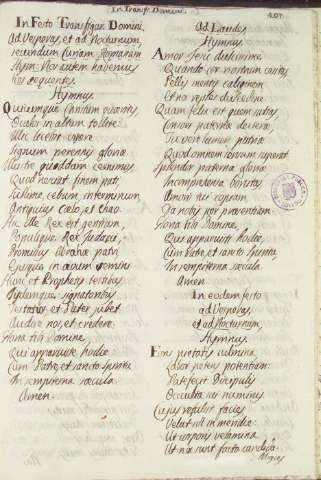 In Transf. Domini.
407.
In Festo Transfigur. Domini,
Ad Vesperas, et ad Nocturnum,
secundum Curiam Romanam
Hymn. Nos autem habemus
hos sequentes.
Hymnus.
Quicumque Christum quæritis,
Oculos in altum tollite
Illic licebit visere
Signum perennis gloriæ
Illustre quoddam cernimus
Quod nesciat finem pati,
Sublime, celsum, interminum,
Antiquius Cœlo, et chao.
Hic ille Rex est gentium,
Populique Rex Judaici,
Promissus Abrahæ patri,
Ejusque in ævum semini.
Hunc et Prophetis testibus,
Isdemque signatoribus
Testator et Pater jubet
Audire nos, et credere.
Gloria tibi Domine
Qui apparuisti hodie
Cum Patre, et sancto Spiritu
In sempiterna sæcula.
Amen.
Ad Laudes
Hymnus.
Amor Jesu dulcissime
Quando cor nostrum visitas,
Pellis mentis caliginem
Et nos reples dulcedine.
Quam felix est quem satias,
Consors paternæ dexteræ,
Tu veri lumen patriæ
Quod omnem sensum superat
Splendor paternæ gloriæ
Incomprehensa bonitas
Amoris tui copiam
Da nobis per præsentiam.
Gloria tibi Domine,
Qui apparuisti hodie,
Cum Patre, et sancto Spiritu,
In sempiterna sæcula
Amen.
In eodem festo
ad Vesperas
et ad Nocturnum,
Hymnus.
culmina,
Labor potens potentiam:
Patefecit Discipulis
Occulta
Cujus refulsit facies
Velut sol in meridie:
Ut corporis velamina
Ut nix sunt facta candida.